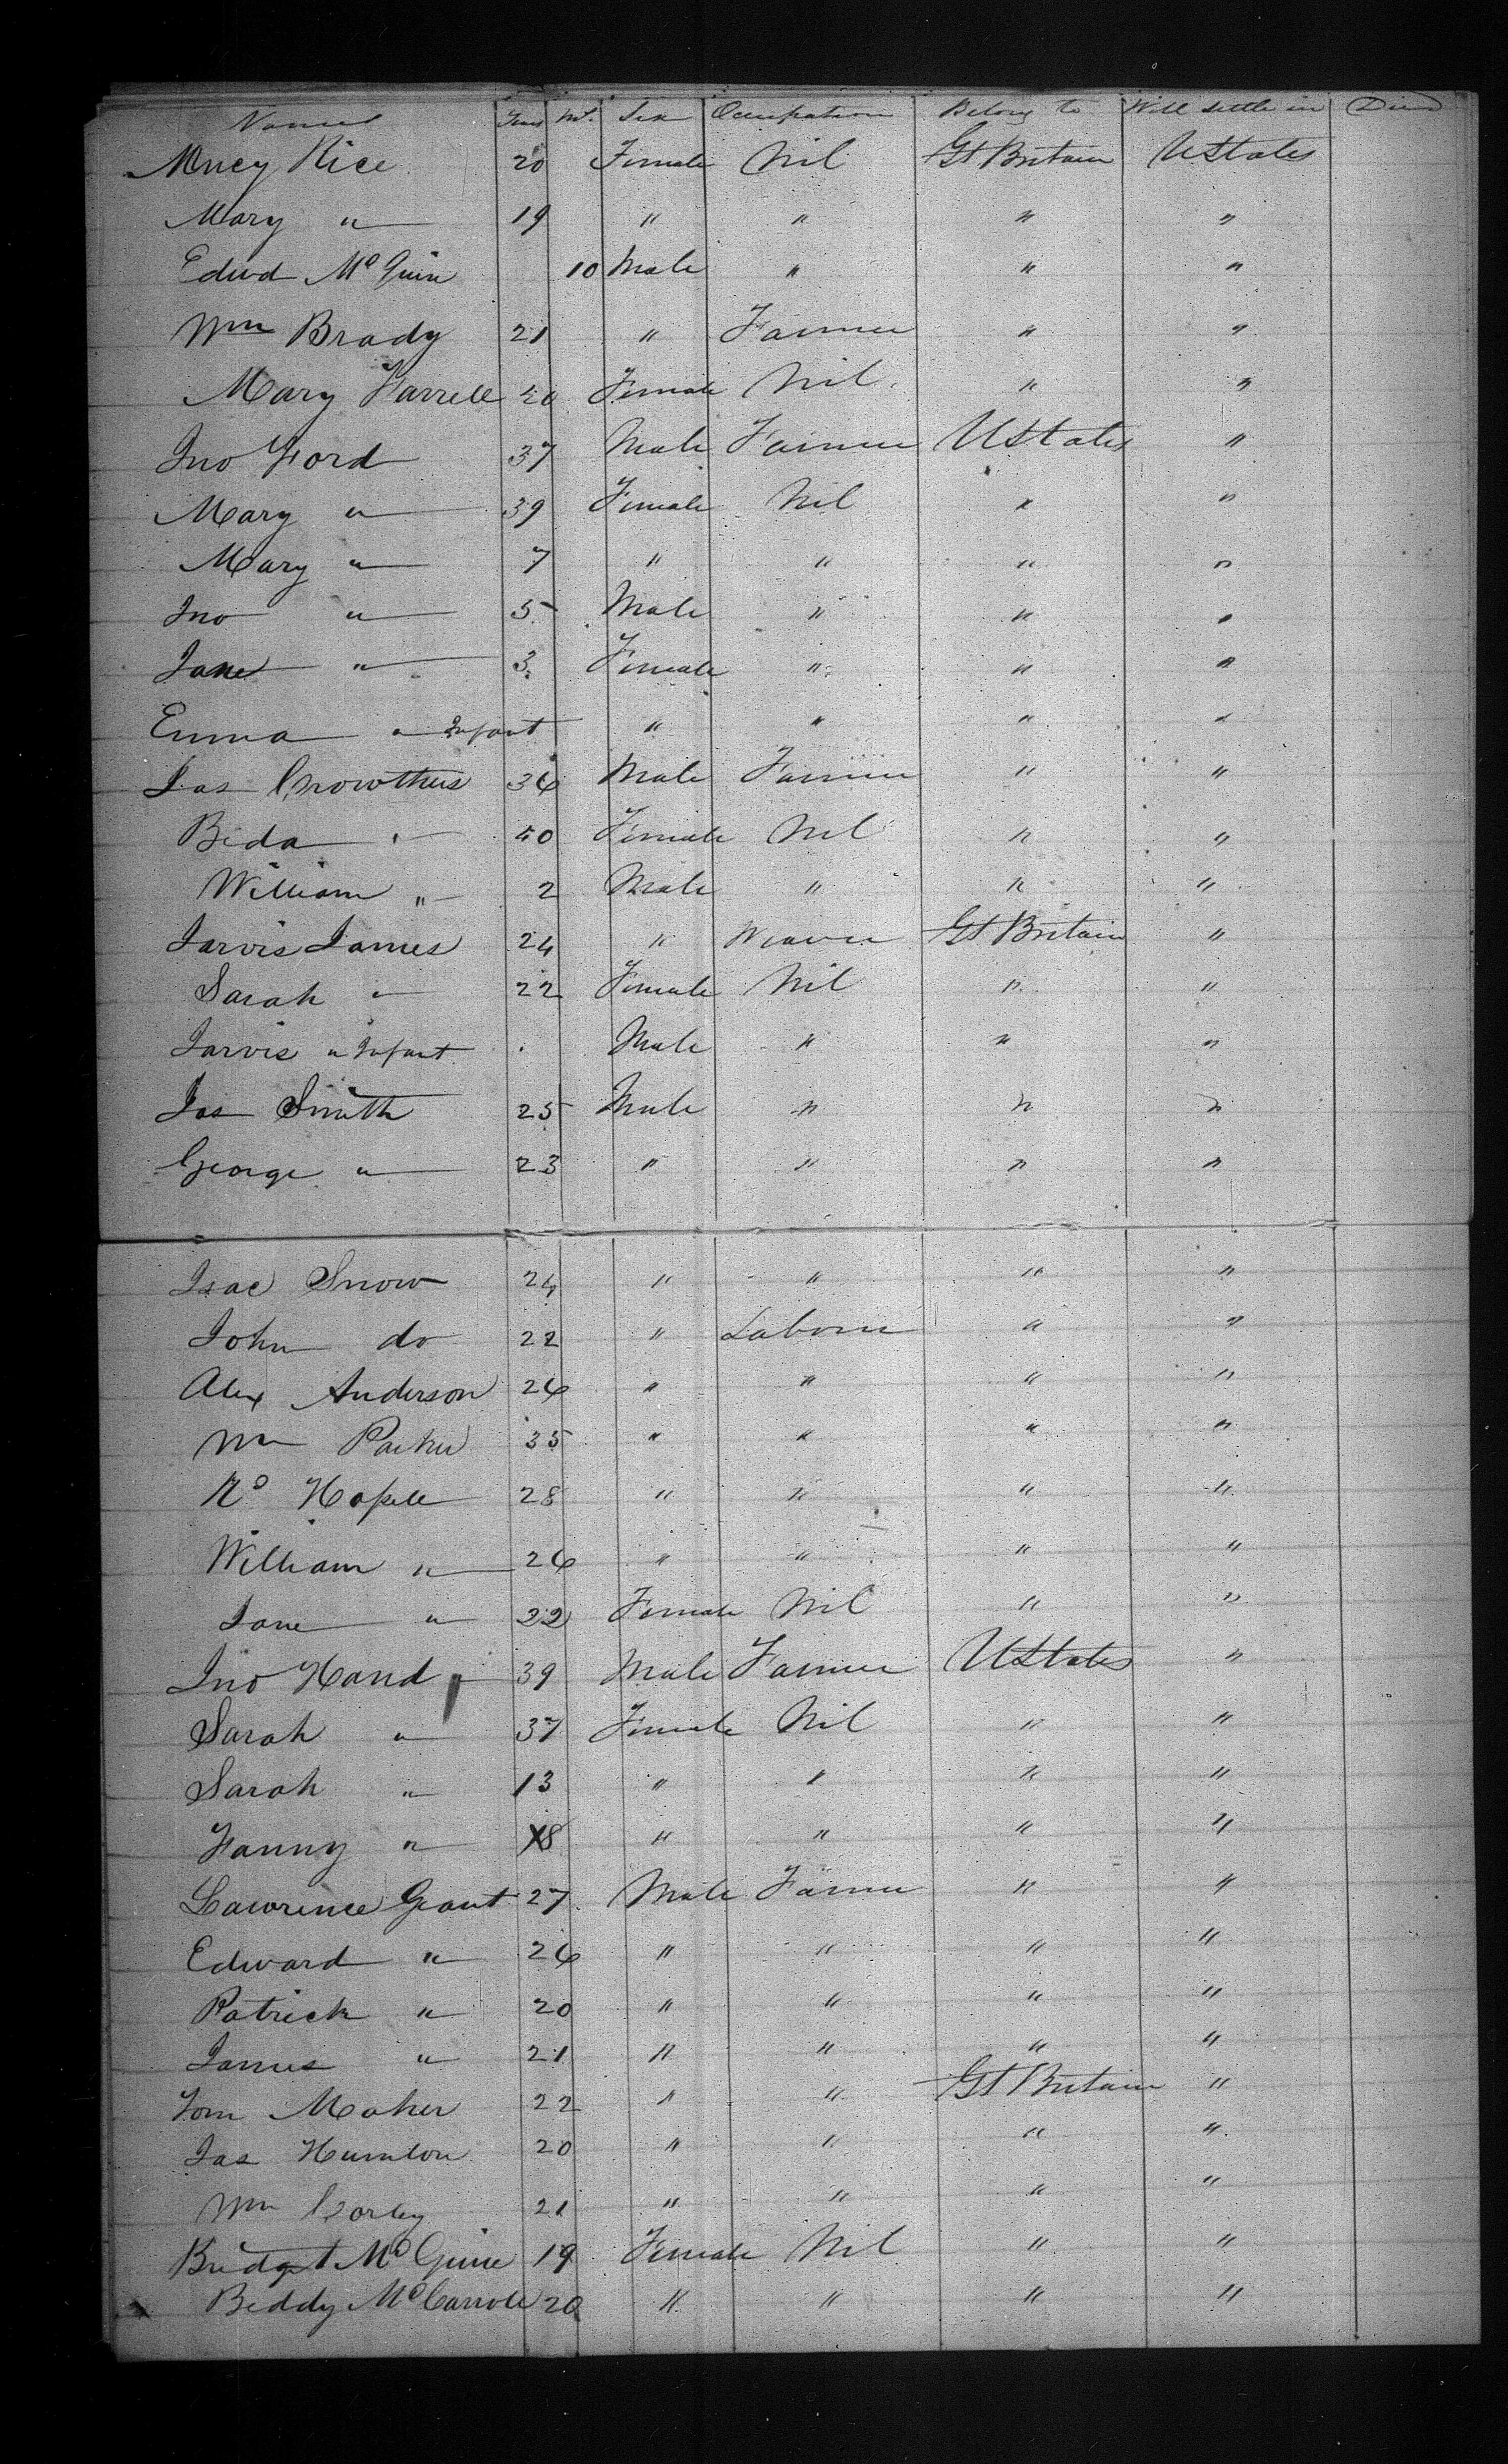 Names Years Ms. Sex Occupation Belong to Will settle in Died
Mucy Rice 20 Female Nil Gt Britain UStates
Mary " 19 " " " "
Edwd McGuin 10 Male " " "
Wm Brady 21 " Farmer " "
Mary Farrell 20 Female Nil " "
Jno Ford 37 Male Farmer UStates "
Mary " 39 Female Nil " "
Mary " 7 " " " "
Jno " 5 Male " " "
Jane " 3 Female " " "
Emma " Infant " " " "
Jas Crowthers 36 Male Farmer " "
Beda " 40 Female Nil " "
William " 2 Male " " "
Jarvis James 24 " Weaver Gt Britain "
Sarah " 22 Female Nil " "
Jarvis " Infant Male " " "
Jas Smith 25 Male " " "
George " 23 " " " "
Isac Snow 24 " " " "
John do 22 " Laborer " "
Alex Anderson 26 " " " "
Wm Parker 35 " " " "
Ro Hopell 28 " " " "
William " 26 " " " "
Jane " 22 Female Nil " "
Jno Hand 39 Male Farmer UStates "
Sarah " 37 Female Nil " "
Sarah " 13 " " " "
Fanny " 8 " " " "
Lawrence Grant 27 Male Farmer " "
Edward " 26 " " " "
Patrick " 20 " " " "
James " 21 " " " "
Tom Maher 22 " " Gt Britain "
Jas 20 " " " "
Wm Corley 21 " " " "
Bridget McGuire 19 Female Nil " "
Biddy McCarroll 20 " " " "